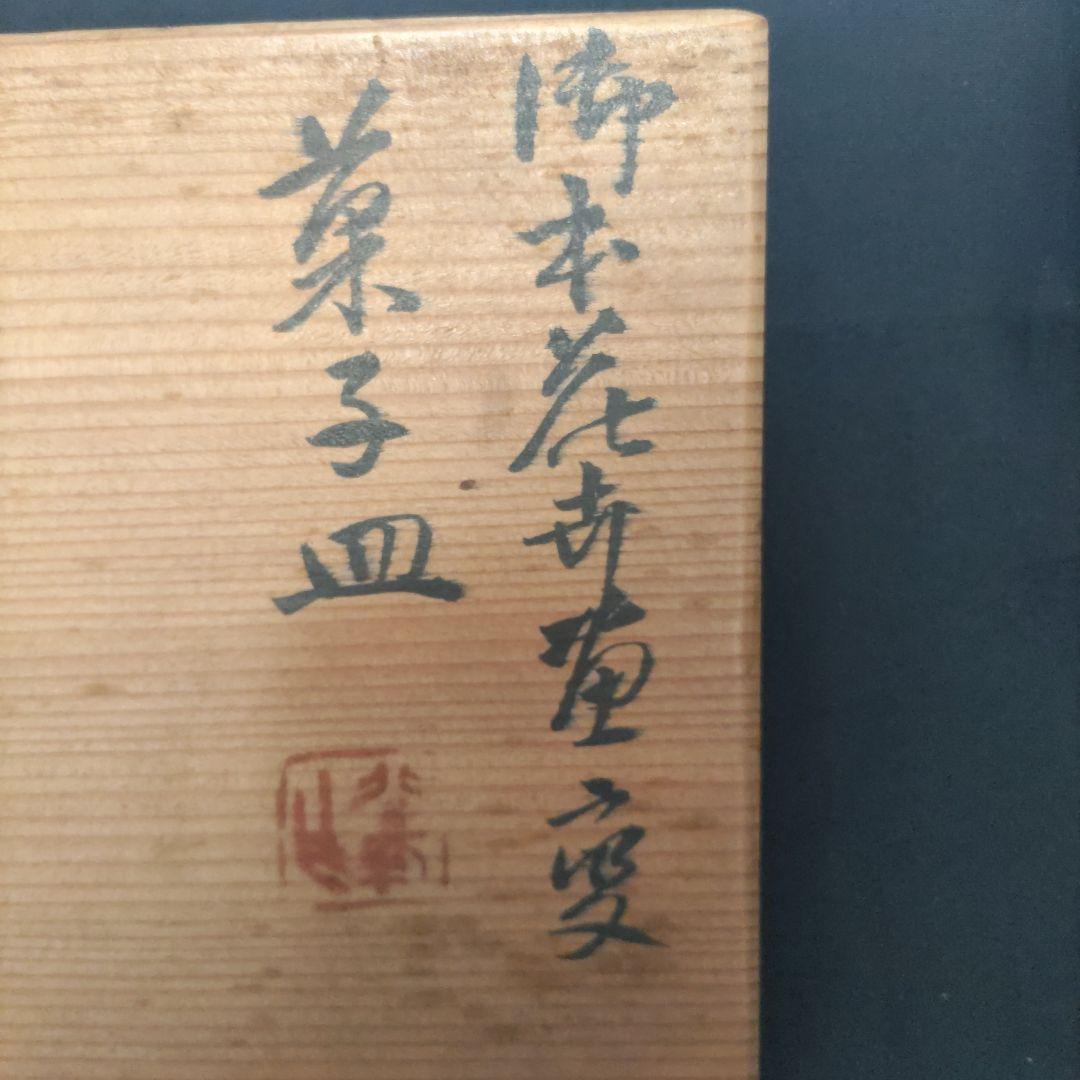 御本花卉画変
菓子皿